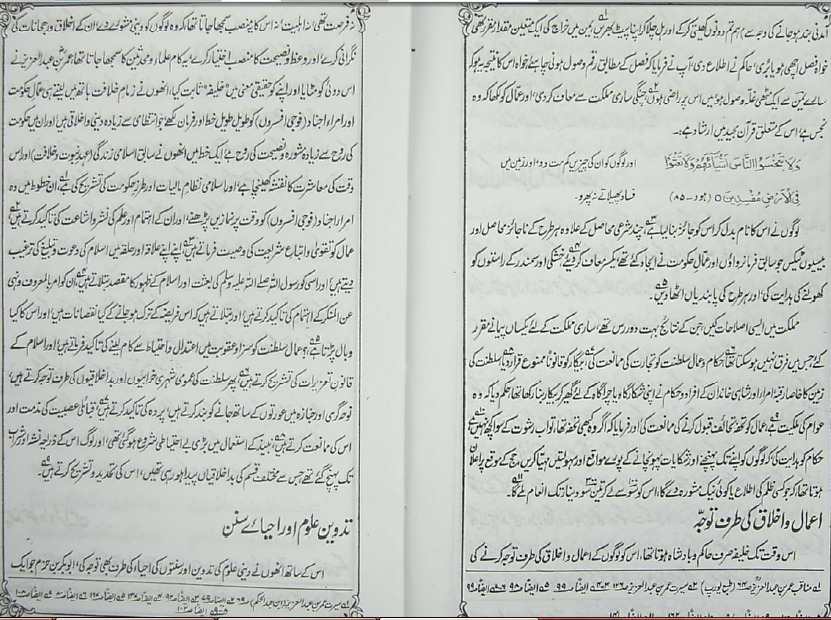 آمدنی بند ہوجانے کی وجہ سے) ہم تم دونوں کھیتی کرکے اور ہل چلا کر اپنا پیٹ بھریں یمن میں خراج کی ایک متعین مقدار مقرر تھی
خواہ فصل اچھی ہو یا بری، حاکم نے اطلاع دی، آپ نے فرمایا کہ فصل کے مطابق رقم وصول ہونی چاہئے خواہ اس کا نتیجہ یہ ہو کہ
سارے یمن سے ایک مٹھی غلہ وصول ہو، میں اس پر راضی ہوں، چنگی ساری مملکت سے معاف کردی، اور عمال کو لکھا کہ وہ
نجس ہے، اس کے متعلق قرآن مجید میں ارشاد ہے:۔
وَلَا تَبْخَسُوا النَّاسَ أَشْيَاءَهُمْ وَلَا تَعْثَوْا اور لوگوں کو ان کی چیزیں کم مت دو، اور زمین میں
فِي الْأَرْضِ مُفْسِدِينَ ○ (ہود۔ ۸۵) فساد پھیلاتے نہ پھرو۔
لوگوں نے اس کا نام بدل کر اس کو جائز بنالیا ہے، چند شرعی محاصل کے علاوہ ہر طرح کے ناجائز محاصل اور
بیسیوں ٹیکس جو سابق فرمانرواؤں اور عمال حکومت نے ایجاد کئے تھے یکسر معاف کر دیئے خشکی اور سمندر کے راستوں کو
کھولنے کی ہدایت کی، اور ہر طرح کی پابندیاں اٹھا دیں۔
مملکت میں ایسی اصلاحات کیں جن کے نتائج بہت دوررس تھے، ساری مملکت کے لئے یکساں پیمانے مقرر
کئے جس میں فرق نہیں ہوسکتا تھا حکام و عمال سلطنت کو تجارت کی ممانعت کی، بیگار کو قانوناً ممنوع قرار دیا سلطنت کی
زمین کا خاصا رقبہ امراء اور شاہی خاندان کے افراد و حکام نے اپنی شکارگاہ یا چراگاہ کے لئے گھیر کر بیکار بنا رکھا تھا حکم دیا کہ وہ
عوام کی ملکیت ہے عمال کو تحفہ تحائف قبول کرنے کی ممانعت کی اور فرمایا کہ اگر وہ کبھی تحفہ تھا، تو اب رشوت کے سوا کچھ نہیں ہے
حکام کو ہدایت کی کہ لوگوں کو اپنے تک پہنچنے اور شکایات پہونچانے کے پورے مواقع اور سہولتیں مہیا کریں حج کے موقع پر اعلان
ہوتا تھا کہ جو کسی ظلم کی اطلاع یا کوئی نیک مشورہ دے گا، اس کو سو سے لے کر تین سو دینار تک انعام ملے گا۔
اعمال و اخلاق کی طرف توجہ
اس وقت تک خلیفہ صرف حاکم و بادشاہ ہوتا تھا، اس کو لوگوں کے اعمال و اخلاق کی طرف توجہ کرنے کی
نہ فرصت تھی، نہ اہلیت، نہ اس کا یہ منصب سمجھا جاتا تھا کہ وہ لوگوں کو دینی مشورے دے ان کے اخلاق و رجحانات کی
نگرانی کرے، اور وعظ و نصیحت کا منصب اختیار کرے، یہ کام علماء و محدثین کا سمجھا جاتا تھا، عمر بن عبدالعزیز نے
اس دوئی کو مٹایا اور اپنے کو حقیقی معنی میں خلیفہ ثابت کیا، انھوں نے زمام خلافت ہاتھ میں لیتے ہی عمال حکومت
اور امراء اجناد (فوجی افسروں) کو طویل طویل خطا اور فرمان لکھے جو انتظامی سے زیادہ دینی و اخلاقی ہیں، اور ان میں حکومت
کی روح سے زیادہ مشورہ و نصیحت کی روح ہے، ایک خط میں انھوں نے سابق اسلامی زندگی (عہد نبوت و خلافت) اور اس
وقت کی معاشرت کا نقشہ کھینچا ہے، اور اسلامی نظام مالیات اور طرز حکومت کی تشریح کی ہے، ان خطوط میں وہ
امراء اجناد (فوجی افسروں) کو وقت پر نماز پڑھنے، اور ان کے اہتمام اور علم کی نشر و اشاعت کی تاکید کرتے ہیں،
عمال کو تقویٰ و اتباع شریعت کی وصیت فرماتے ہیں، اپنے اپنے علاقہ اور حلقہ میں اسلام کی دعوت و تبلیغ کی ترغیب
دیتے ہیں، اور اس کو رسول اللہ صلے اللہ علیہ وسلم کی بعثت اور اسلام کے ظہور کا مقصد بتلاتے ہیں، ان کو امر بالمعروف و نہی
عن المنکر کے اہتمام کی تاکید کرتے ہیں، اور بتلاتے ہیں کہ اس فریضہ کے ترک ہوجانے کے کیا نقصانات ہیں، اور اس کا کیا
وبال پڑتا ہے، عمال سلطنت کو سزا و عقوبت میں اعتدال و احتیاط سے کام لینے کی تاکید فرماتے ہیں، اور اسلام کے
قانون تعزیرات کی تشریح کرتے ہیں، پھر سلطنت کی عمومی شہری خرابیوں اور بداخلاقیوں کی طرف توجہ کرتے ہیں،
نوحہ گری اور جنازہ میں عورتوں کے ساتھ جانے کو بند کرتے ہیں، پردہ کی تاکید کرتے ہیں، قبائلی عصبیت کی مذمت اور
اس کی ممانعت کرتے ہیں، نبیذ کے استعمال میں بڑی بے احتیاطی شروع ہوگئی تھی، اور لوگ اس کے ذریعہ نشہ اور شراب
تک پہنچ گئے تھے جس سے مختلف قسم کی بداخلاقیاں پیدا ہو رہی تھیں، اس کی تحدید و تشریح کرتے ہیں۔
تدوین علوم اور احیائے سنن
اس کے ساتھ انھوں نے دینی علوم کی تدوین اور سنتوں کی احیاء کی طرف بھی توجہ کی، ابوبکر بن حزم جو ایک